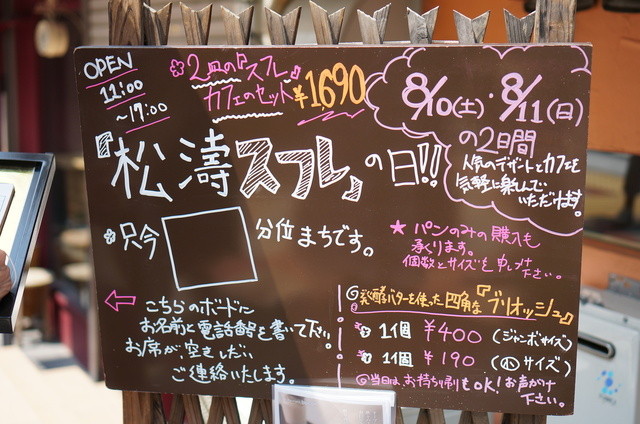 OPEN
11:00
~17:00
2皿の『スフレ』
カフェのセット ¥1690
8/10(土)・8/11(日)
の2日間
人気のデザートとカフェを
気軽に楽しんで
いただけます。
『松濤スフレ』の日!!
只今 分位まちです。
★パンのみの購入も
承ります。
個数とサイズを申し付け
下さい。
こちらのボードに
お名前と電話番号を書いて下さい。
お席が空きしだい
ご連絡いたします。
発酵バターを使った四角な『ブリオッシュ』
1個 ¥400 (ジャンボサイズ)
1個 ¥190 (小サイズ)
当日は、お持ち帰りもOK!お声がけ
下さい。